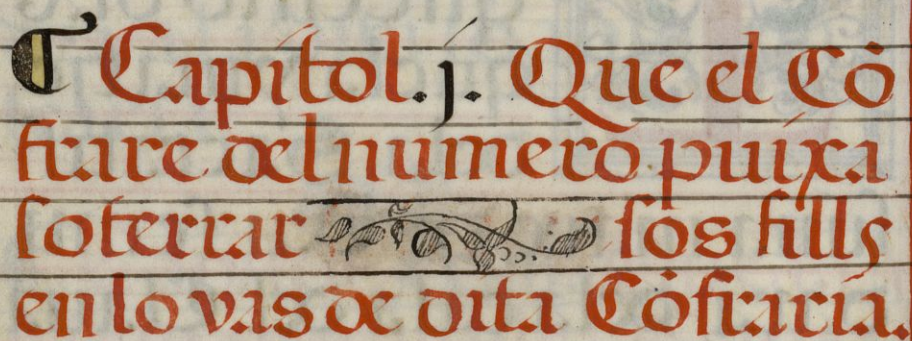 ¶ Capitol .j. Que el Cõ
frare del numero puixa
soterrar sos fills
en lo vas de dita Cõfraria.